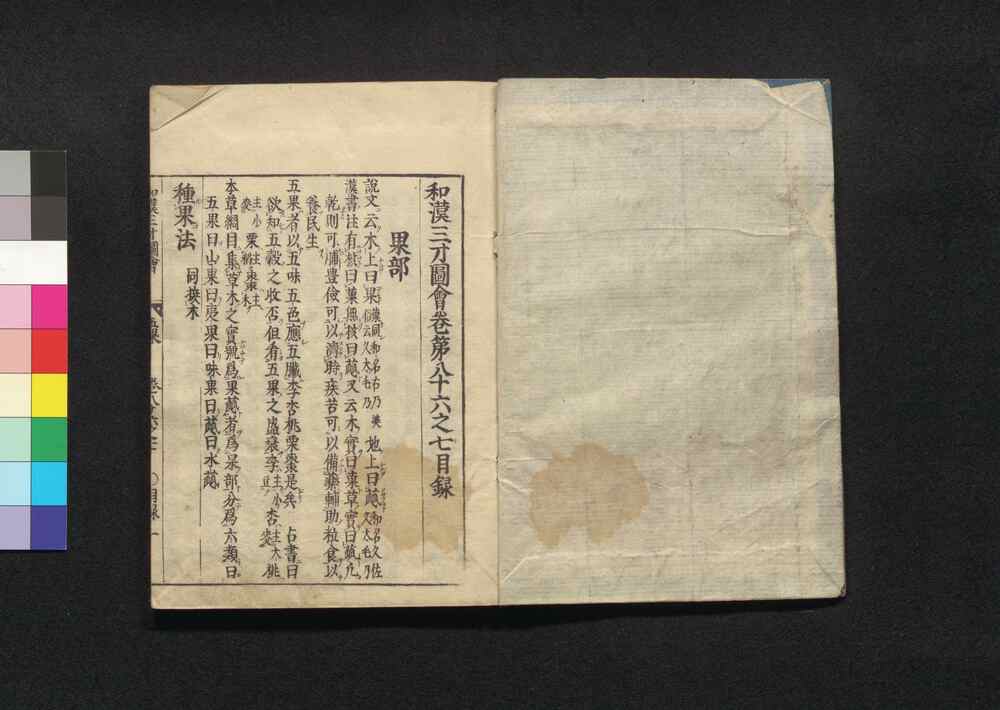 和漢三才圖會卷第八十六之七目録
果部
說文云木上曰果 地上曰蓏
漢書注有核曰菓無核曰蓏又云木實曰菓草實曰蓏凡
乾則可脯豊儉可以濟時疾苦可以備藥輔助粒食以
養民生
五果者以五味五色應五臟李杏桃栗棗是矣 占書曰
欲知五穀之收否但看五果之盛衰李主小豆杏主大麥桃
主小麥栗主稻棗主禾
本草綱目集草木之實號爲果蓏者爲果部分爲六類曰
五果曰山果曰夷果曰味果曰蓏曰水蓏
種果法
同接木
和漢三才圖會
五果
目録 一